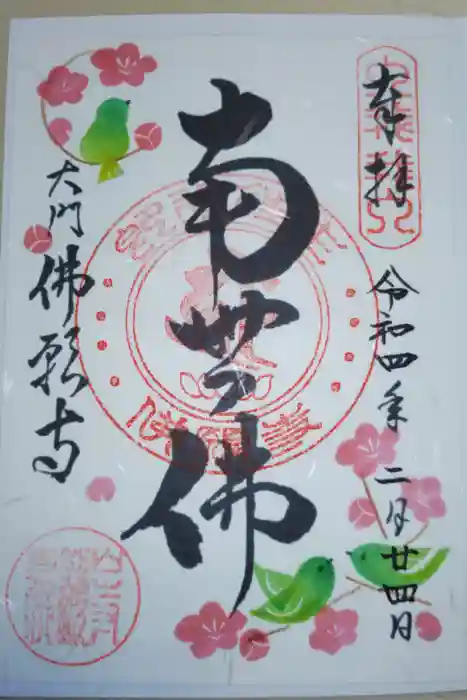 奉拝
令和四年二月廿四日
南無佛
大門
佛願寺